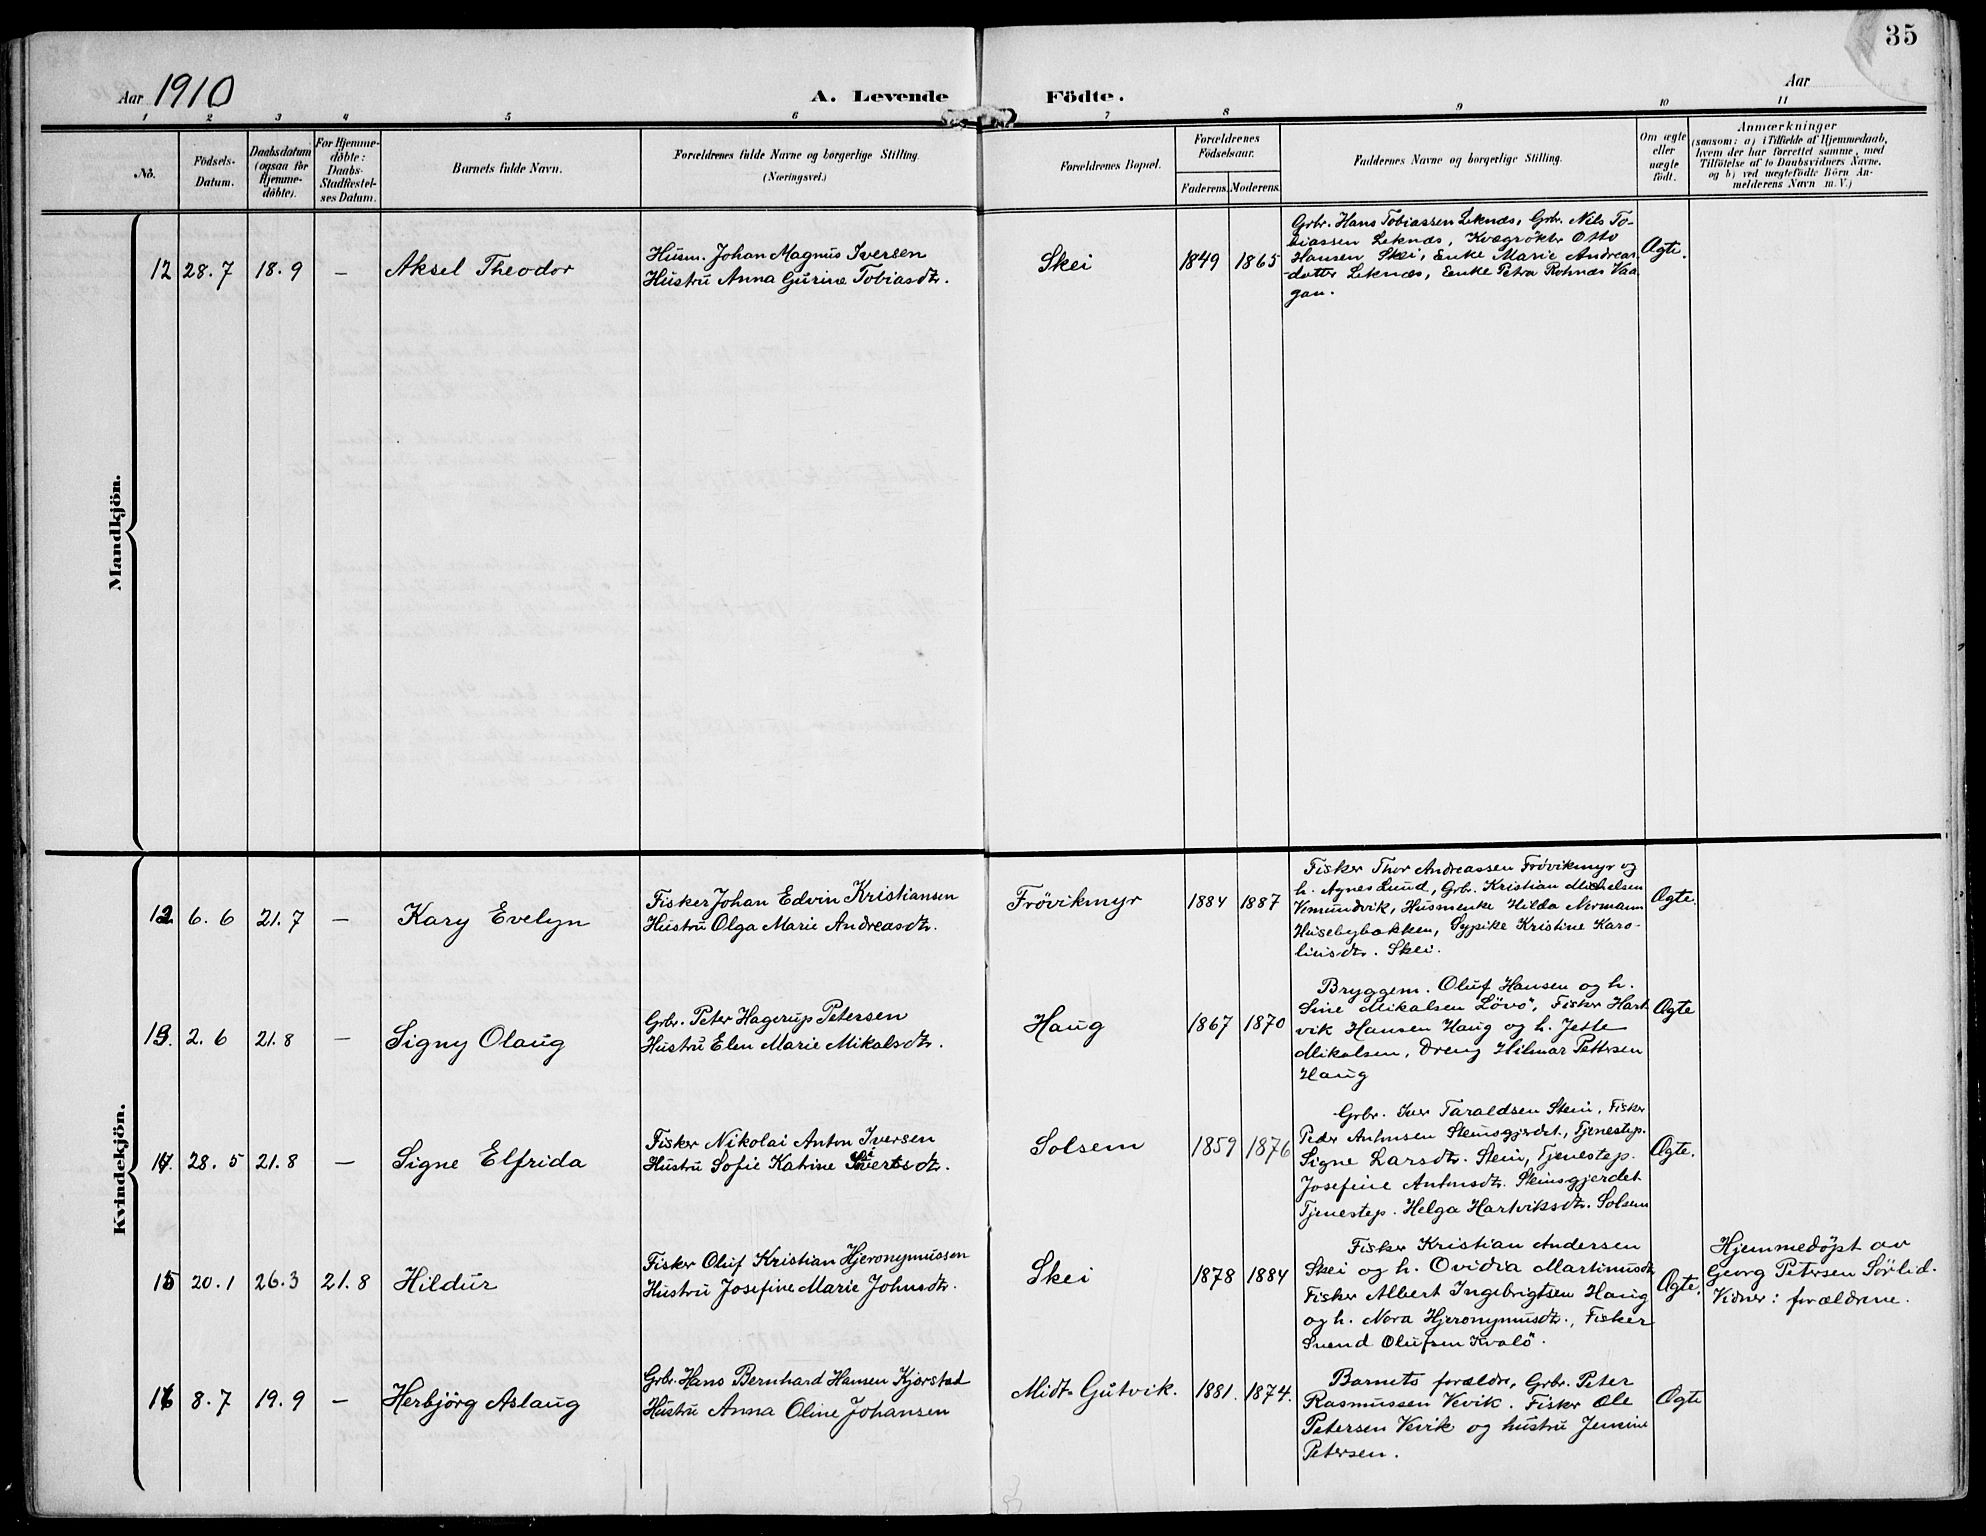 35
Aar 1910
A. Levende Födte.
Aar
1 2 3 4 5 6 7 8 9 10 11
No.
Födsels-
Datum.
Daabsdatum
(ogsaa för
Hjemme-
döbte).
For Hjemme-
döbte:
Daabs-
Stadfæstel-
ses Datum.
Barnets fulde Navn.
Forældrenes fulde Navne og borgerlige Stilling.
(Næringsvei.)
Forældrenes Bopæl.
Forældrenes
Födselsaar.
Faderens. Moderens.
Faddernes Navne og borgerlige Stilling.
Om ægte
eller
uægte
födt.
Anmærkninger
(saasom: a) i Tilfælde af Hjemmedaab,
hvem der har forrettet samme, med
Tilföielse af to Daabsvidners Navne,
og b) ved uægtefödte Börn An-
melderens Navn m. V.)
Mandkjön.
12 28.7 18.9 – Aksel Theodor
Husm. Johan Magnus Iversen
Hustru Anna Gurine Tobiasdtr.
Skei 1849 1865
Grbr. Hans Tobiassen Leknæs, Grbr. Nils To-
biassen Leknæs, Kvægrøktr Otto
Hansen Skei, Enke Marie Andreas-
datter Leknæs, Enke Petra Rohnæs Vaa
gan.
Ægte.
Kvindekjön.
12 6.6 21.7 – Kary Evelyn
Fisker Johan Edvin Kristiansen
Hustru Olga Marie Andreasdtr.
Frövikmyr 1884 1887
Fisker Thor Andreassen Frøvikmyr og
h. Agnes Lund, Grbr. Kristian Michelsen
Vemundvik, Husmenke Hilda Normann
Husebybakken, Sypike Kristine Karo-
liusdtr. Skei.
Ægte.
13. 2.6 21.8 – Signy Olaug
Grbr. Peter Hagerup Petersen
Hustru Elen Marie Mikalsdtr.
Haug 1867 1870
Bryggem. Oluf Hansen og h.
Sine Mikalsen Lövö, Fisker Hart
vik Hansen Haug og h. Jette
Mikalsen, Dreng Hilmar Pettersen
Haug
Ægte
14. 28.5 21.8 – Signe Elfrida
Fisker Nikolai Anton Iversen
Hustru Sofie Katrine Sivertsdtr.
Solsem 1859 1876
Grbr. Iver Taraldsen Stein, Fisker
Peder Antonsen Steinsgjerdet, Tjenestep.
Signe Larsdtr. Stein, Tjenestep.
Josefine Antonsdtr. Steinsgjerdet
Tjenestep. Helga Hartviksdtr. Solsem
Ægte.
15 20.1 26.3 21.8 Hildur
Fisker Oluf Kristian Hjeronymussen
Hustru Josefine Marie Johnsdtr.
Skei 1878 1884
Fisker Kristian Andersen
Skei og h. Ovidia Martinusdtr
Fisker Albert Ingebrigtsen Haug
og h. Nora Hjeronymusdtr., Fisker
Svend Olufsen Kvalö.
Ægte.
Hjemmedöpt av
Georg Petersen Sörlid.
Vidner: forældrene.
16 8.7 19.9 – Herbjörg Aslaug
Grbr. Hans Bernhard Hansen Kjørstad
Hustru Anna Oline Johansen
Midt-Gutvik. 1881. 1874.
Barnets forældre, Grbr. Peter
Rasmussen Vevik. Fisker Ole
Petersen Vevik og hustru Jensine
Petersen.
Ægte